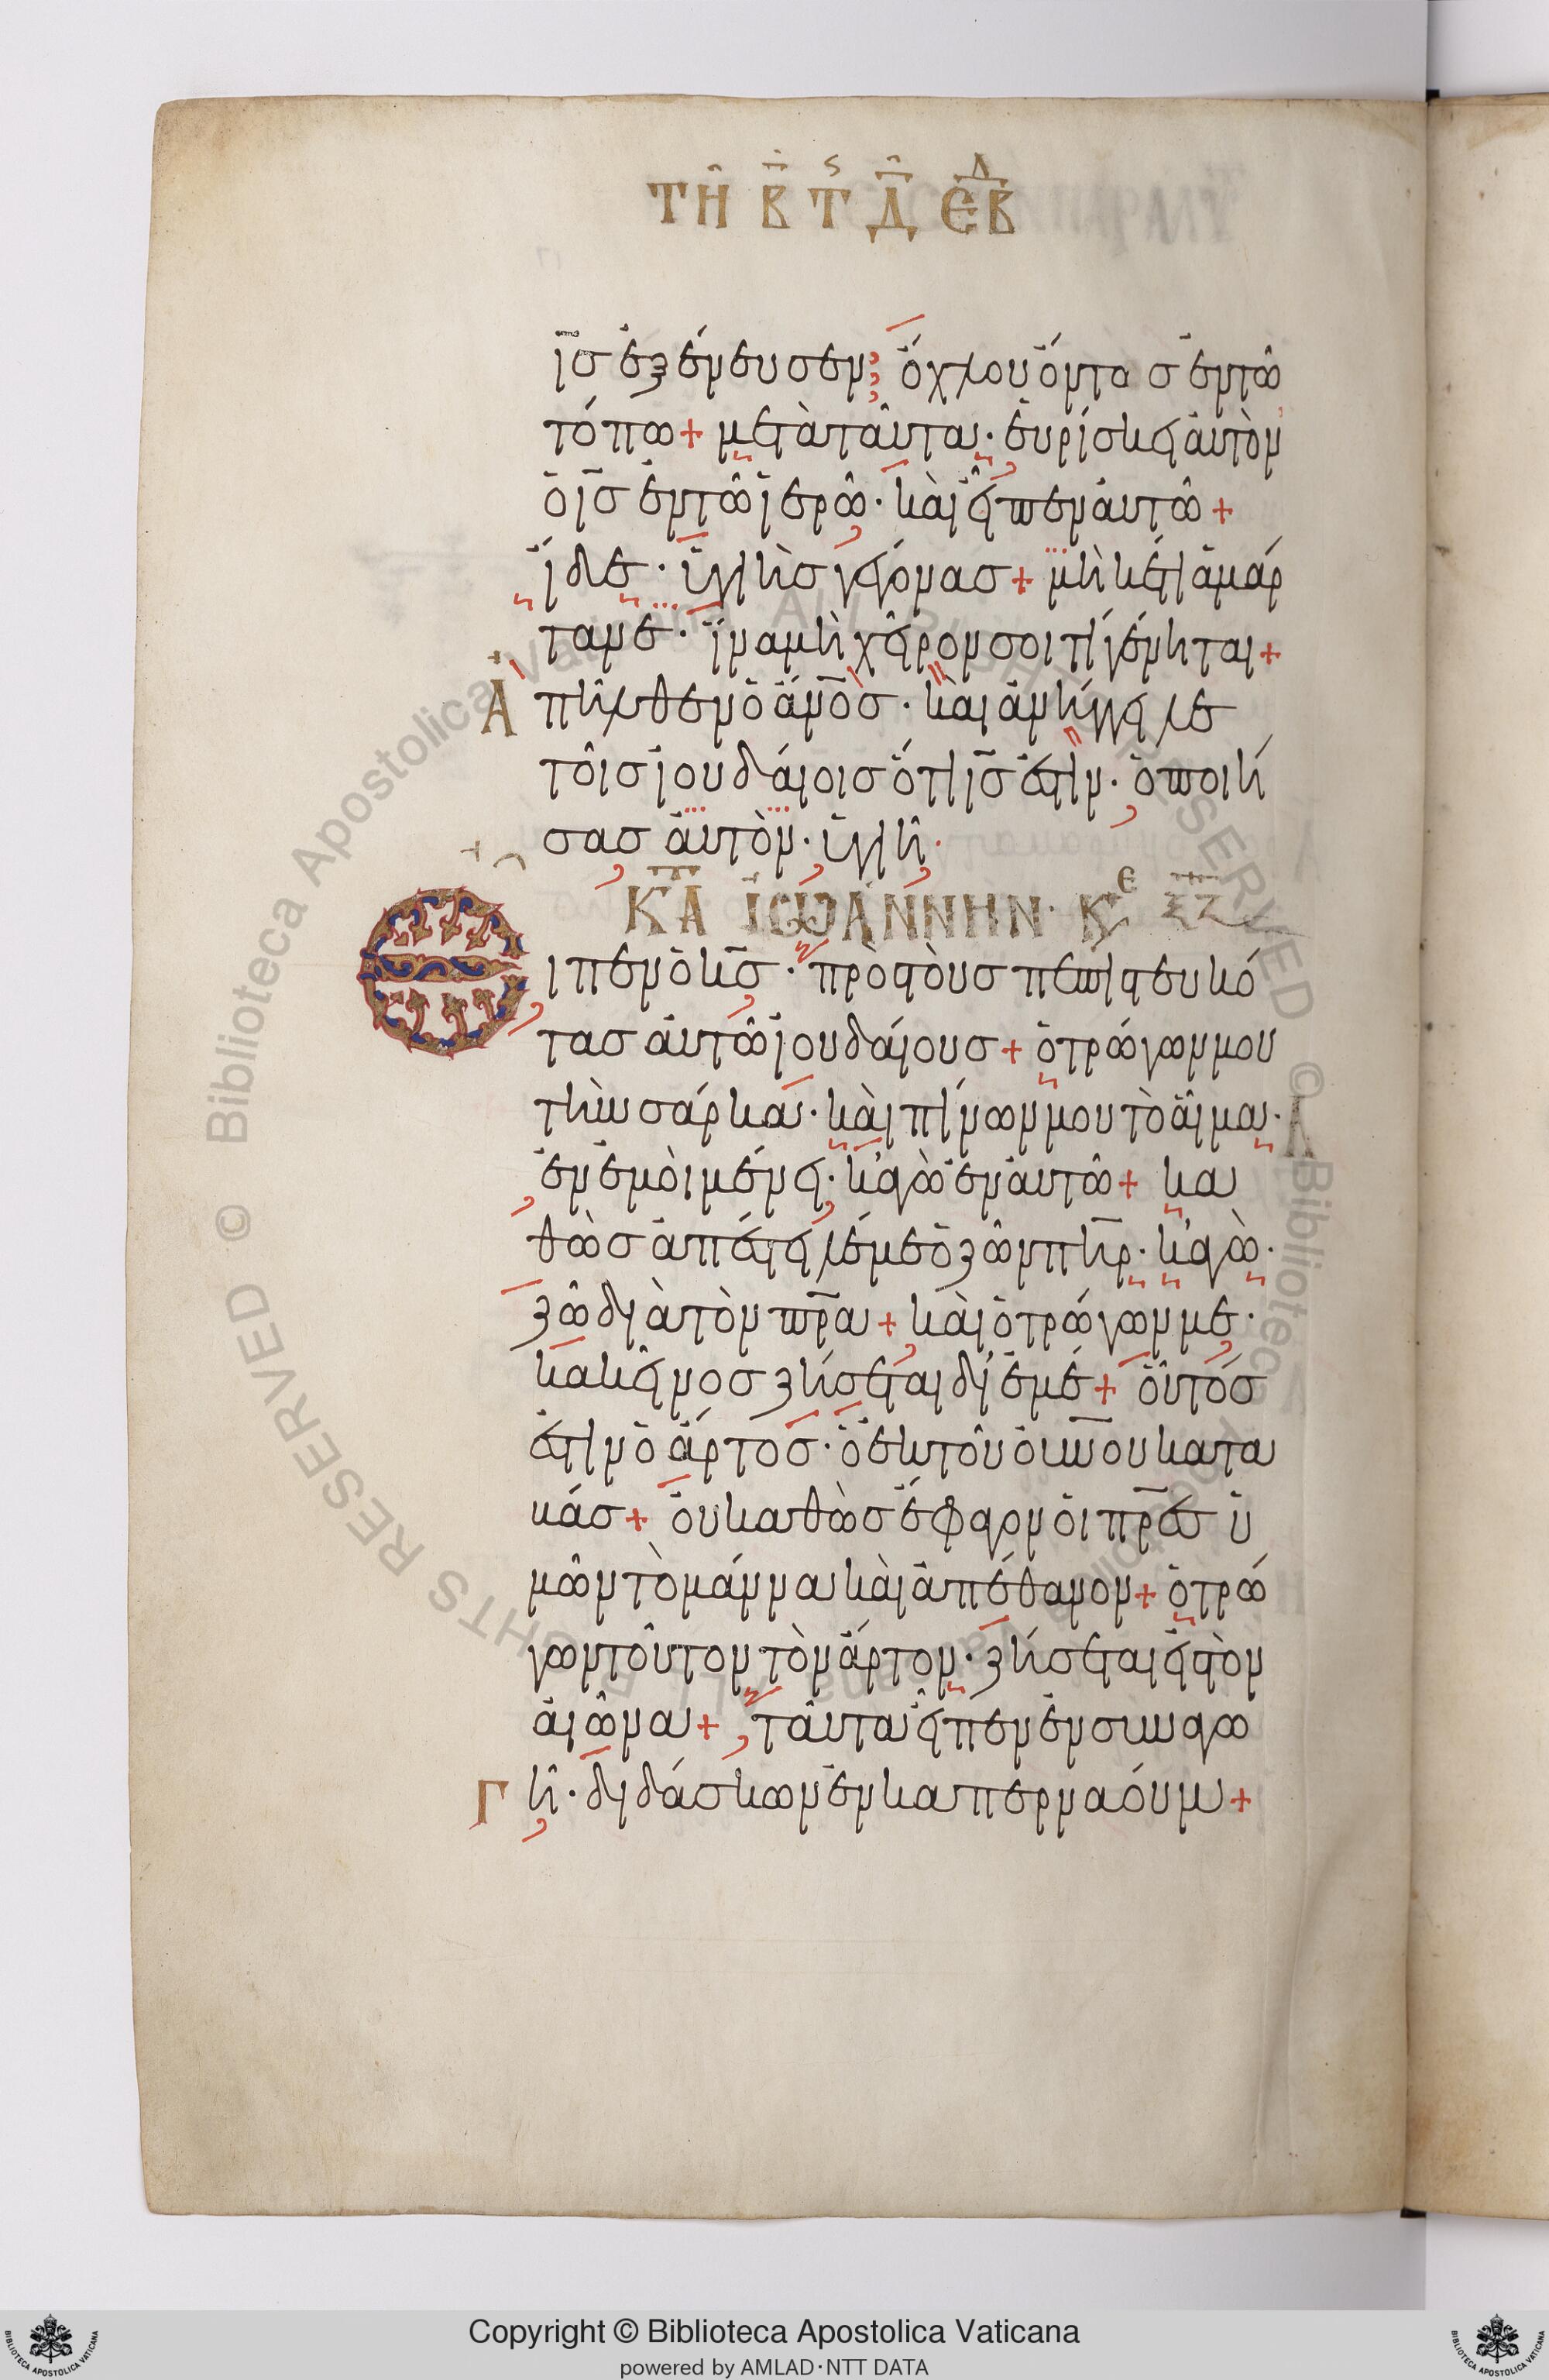 ΤΗ Β Τ Δ ΕΒΔ
ἰ̅σ ἐξένευσεν· ὄχλου ὄντοσ ἐν τῶ
τόπω + μετὰ ταῦτα· εὑρίσκει αὐτὸν
ὁ ι̅σ ἐν τῶ ἱερῶ· καὶ εἶπεν αὐτῶ +
ἴδε· ὑγιὴσ γέγονασ + μηκέτι ἁμάρ
τανε· ἵνα μὴ χεῖρον σοι τί γένηται +
Ἀπῆλθεν ὁ ἄνο̅σ· καὶ ἀνήγγειλε
τοῖσ ἰουδάιοισ ὅτι ι̅σ ἐστὶν· ὁ ποιή
σασ αὐτὸν· ὑγιῆ·
ΚΤΑ ἸΩΑΝΝΗΝ· ΚΕ ΞΖ
Εἶπεν ὁ κ̅σ· πρὸσ τοὺσ πεπιστευκό
τασ αὐτῶ ἰουδάιουσ + ὁ τρώγων μου
τὴν σάρκα· καὶ πίνων μου τὸ αἷμα·
ἐν ἐμοὶ μένει· κἀγὼ ἐν αὐτῶ + κα
θὼσ ἀπέστειλέ με ὁ ζῶν πη̅ρ· κἀγὼ·
ζῶ διὰ τὸν πρ̅α + καὶ ὁ τρώγων με·
κακεῖνοσ ζήσεται δι' ἐμέ + οὗτόσ
ἐστιν ὁ ἄρτοσ· ὁ ἐκ τοῦ οὐν̅ου κατα
βάσ + οὐ καθὼσ ἔφαγον οἱ πρ̅εσ ὑ
μῶν τὸ μάννα καὶ ἀπέθανον + ὁ τρώ
γων τοῦτον τὸν ἄρτον· ζήσεται εἰσ τὸν
αἰῶνα + ταῦτα εἶπεν ἐν συναγω
Γ γῆ· διδάσκων ἐν καπερναούμ +
Copyright © Biblioteca Apostolica Vaticana
powered by AMLAD·NTT DATA